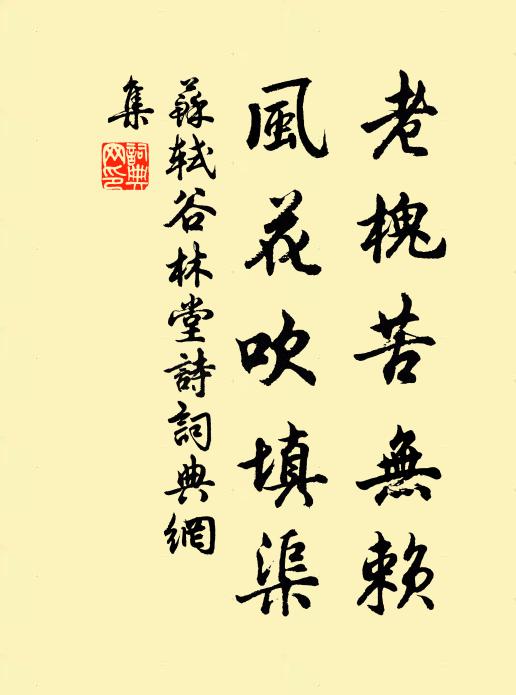 老槐苦無賴
風花吹填渠
蘇軾谷林堂詩詞典網
集
詞典
网印